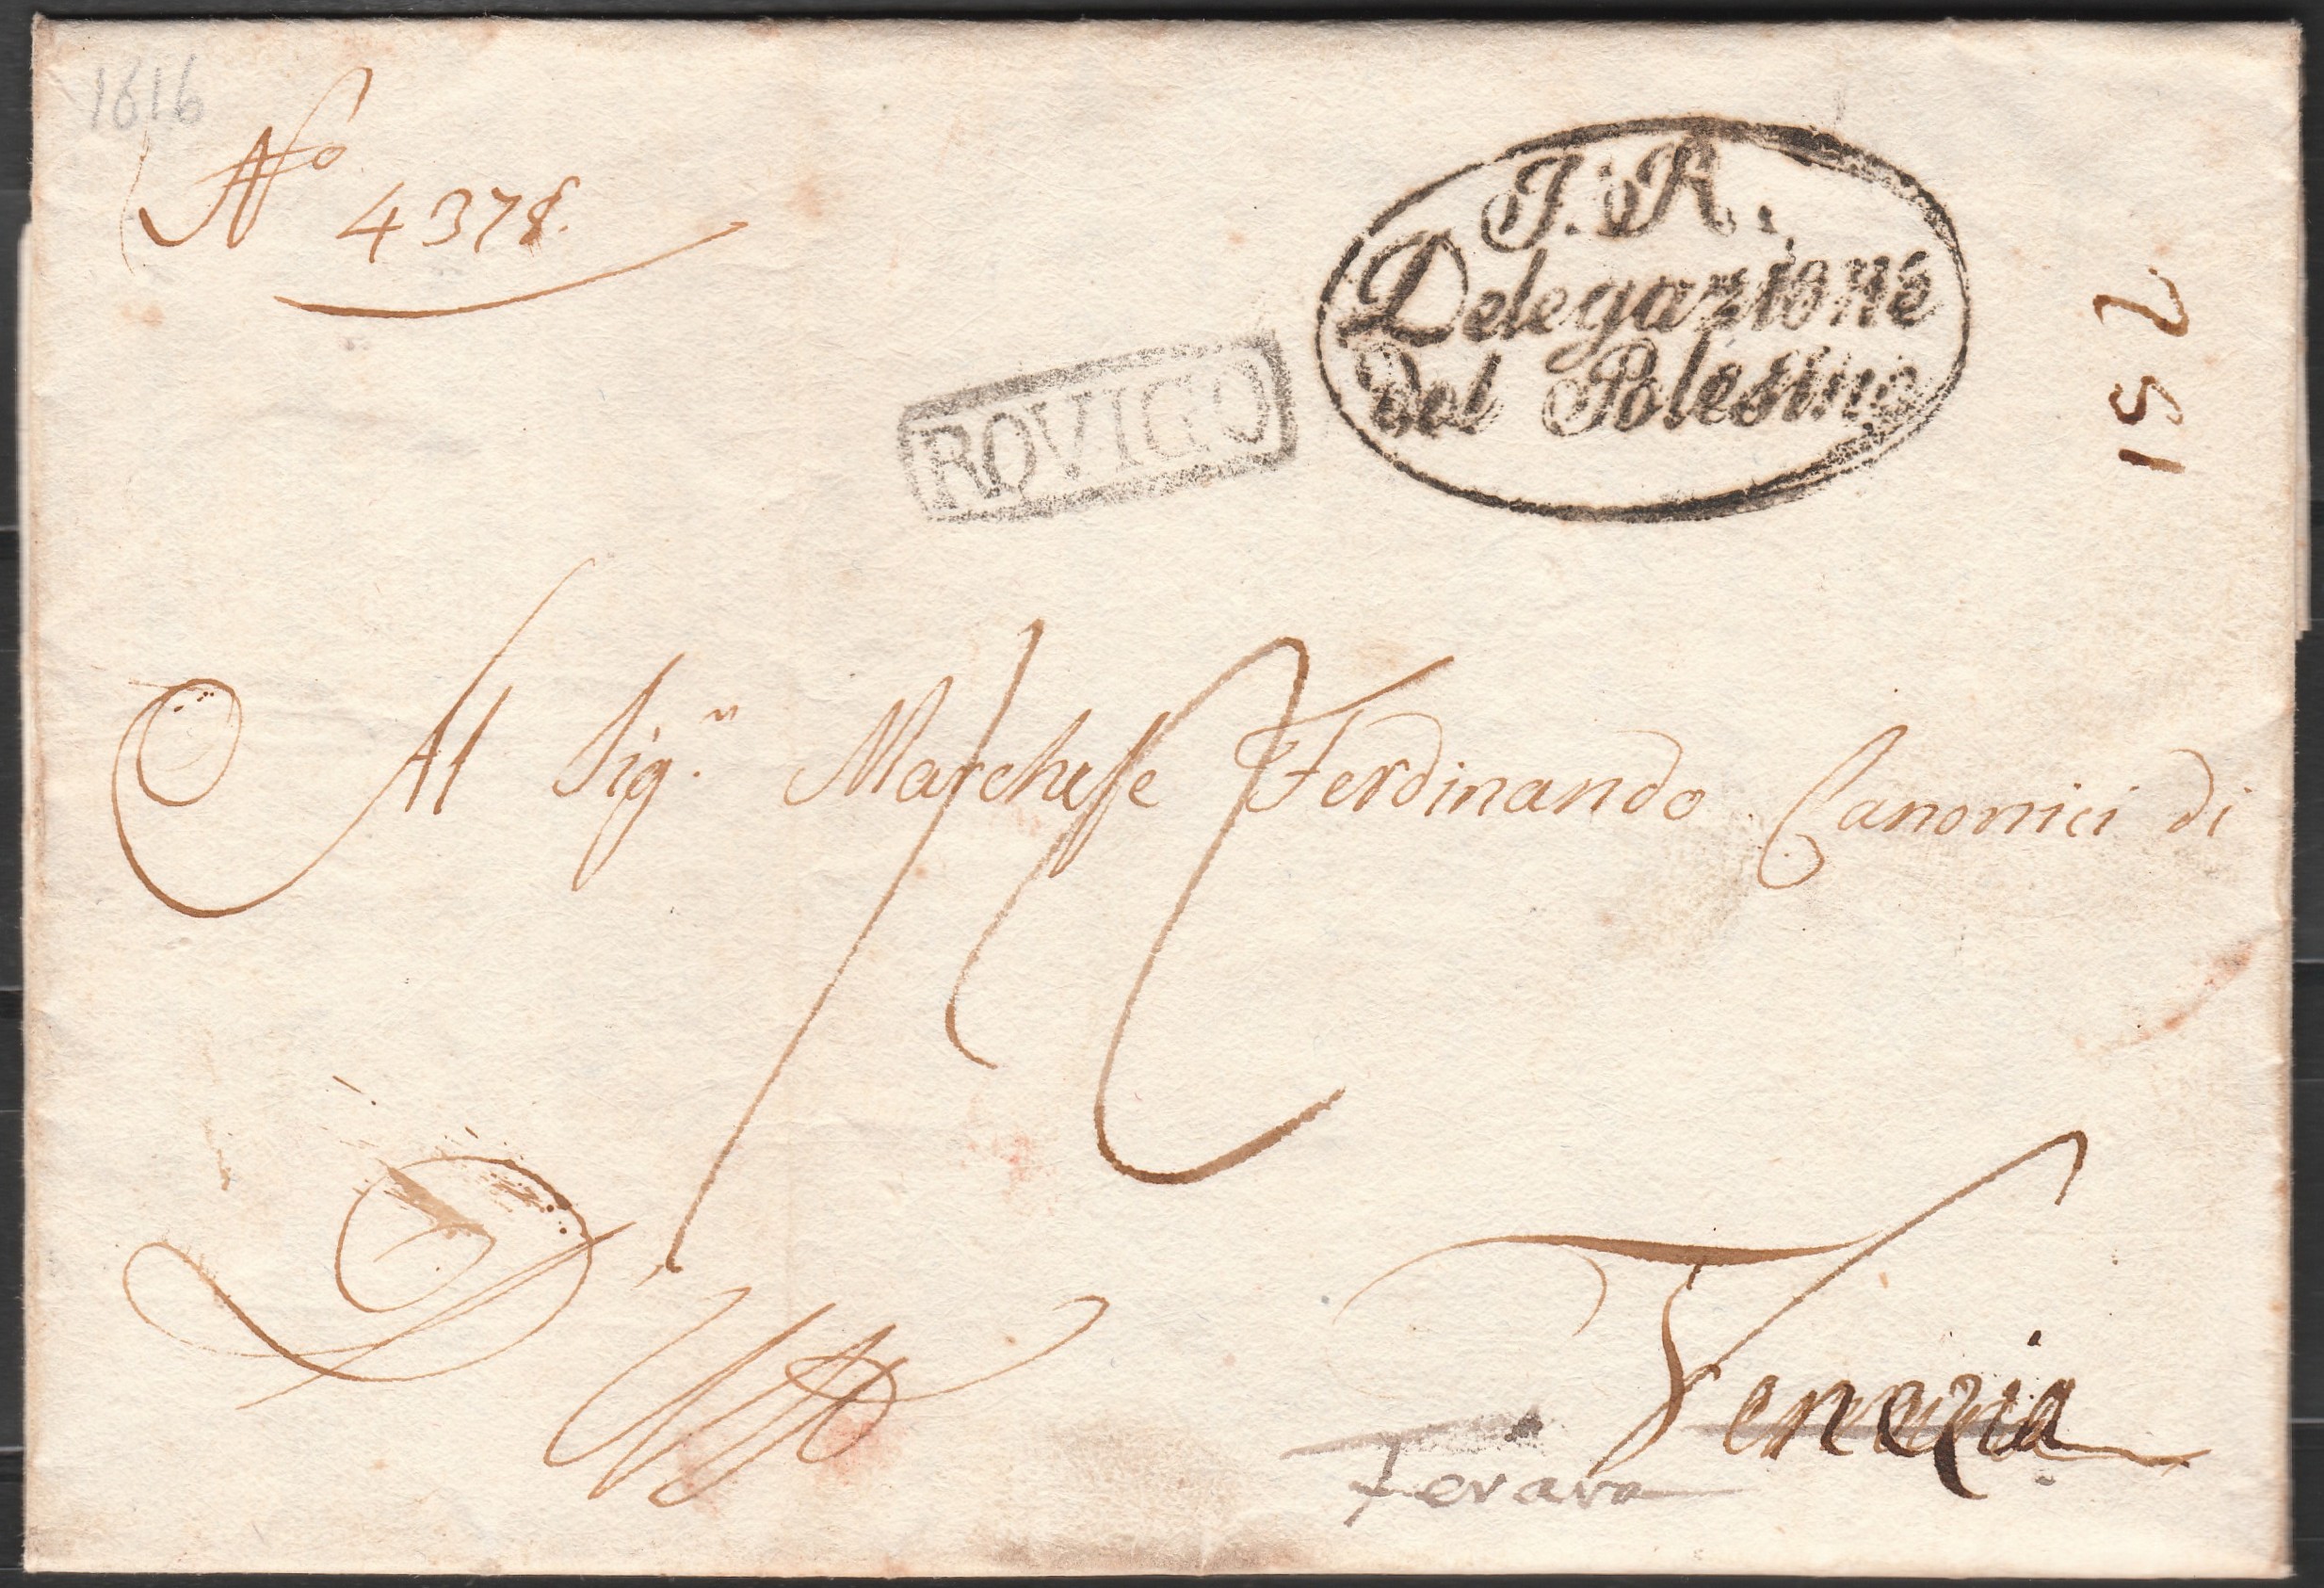 1816
No 4378.
I. R.
Delegazione
del Polesine
ROVIGO
152
Al Sig.r Marchese Ferdinando Canonici di
Venezia
Ferara